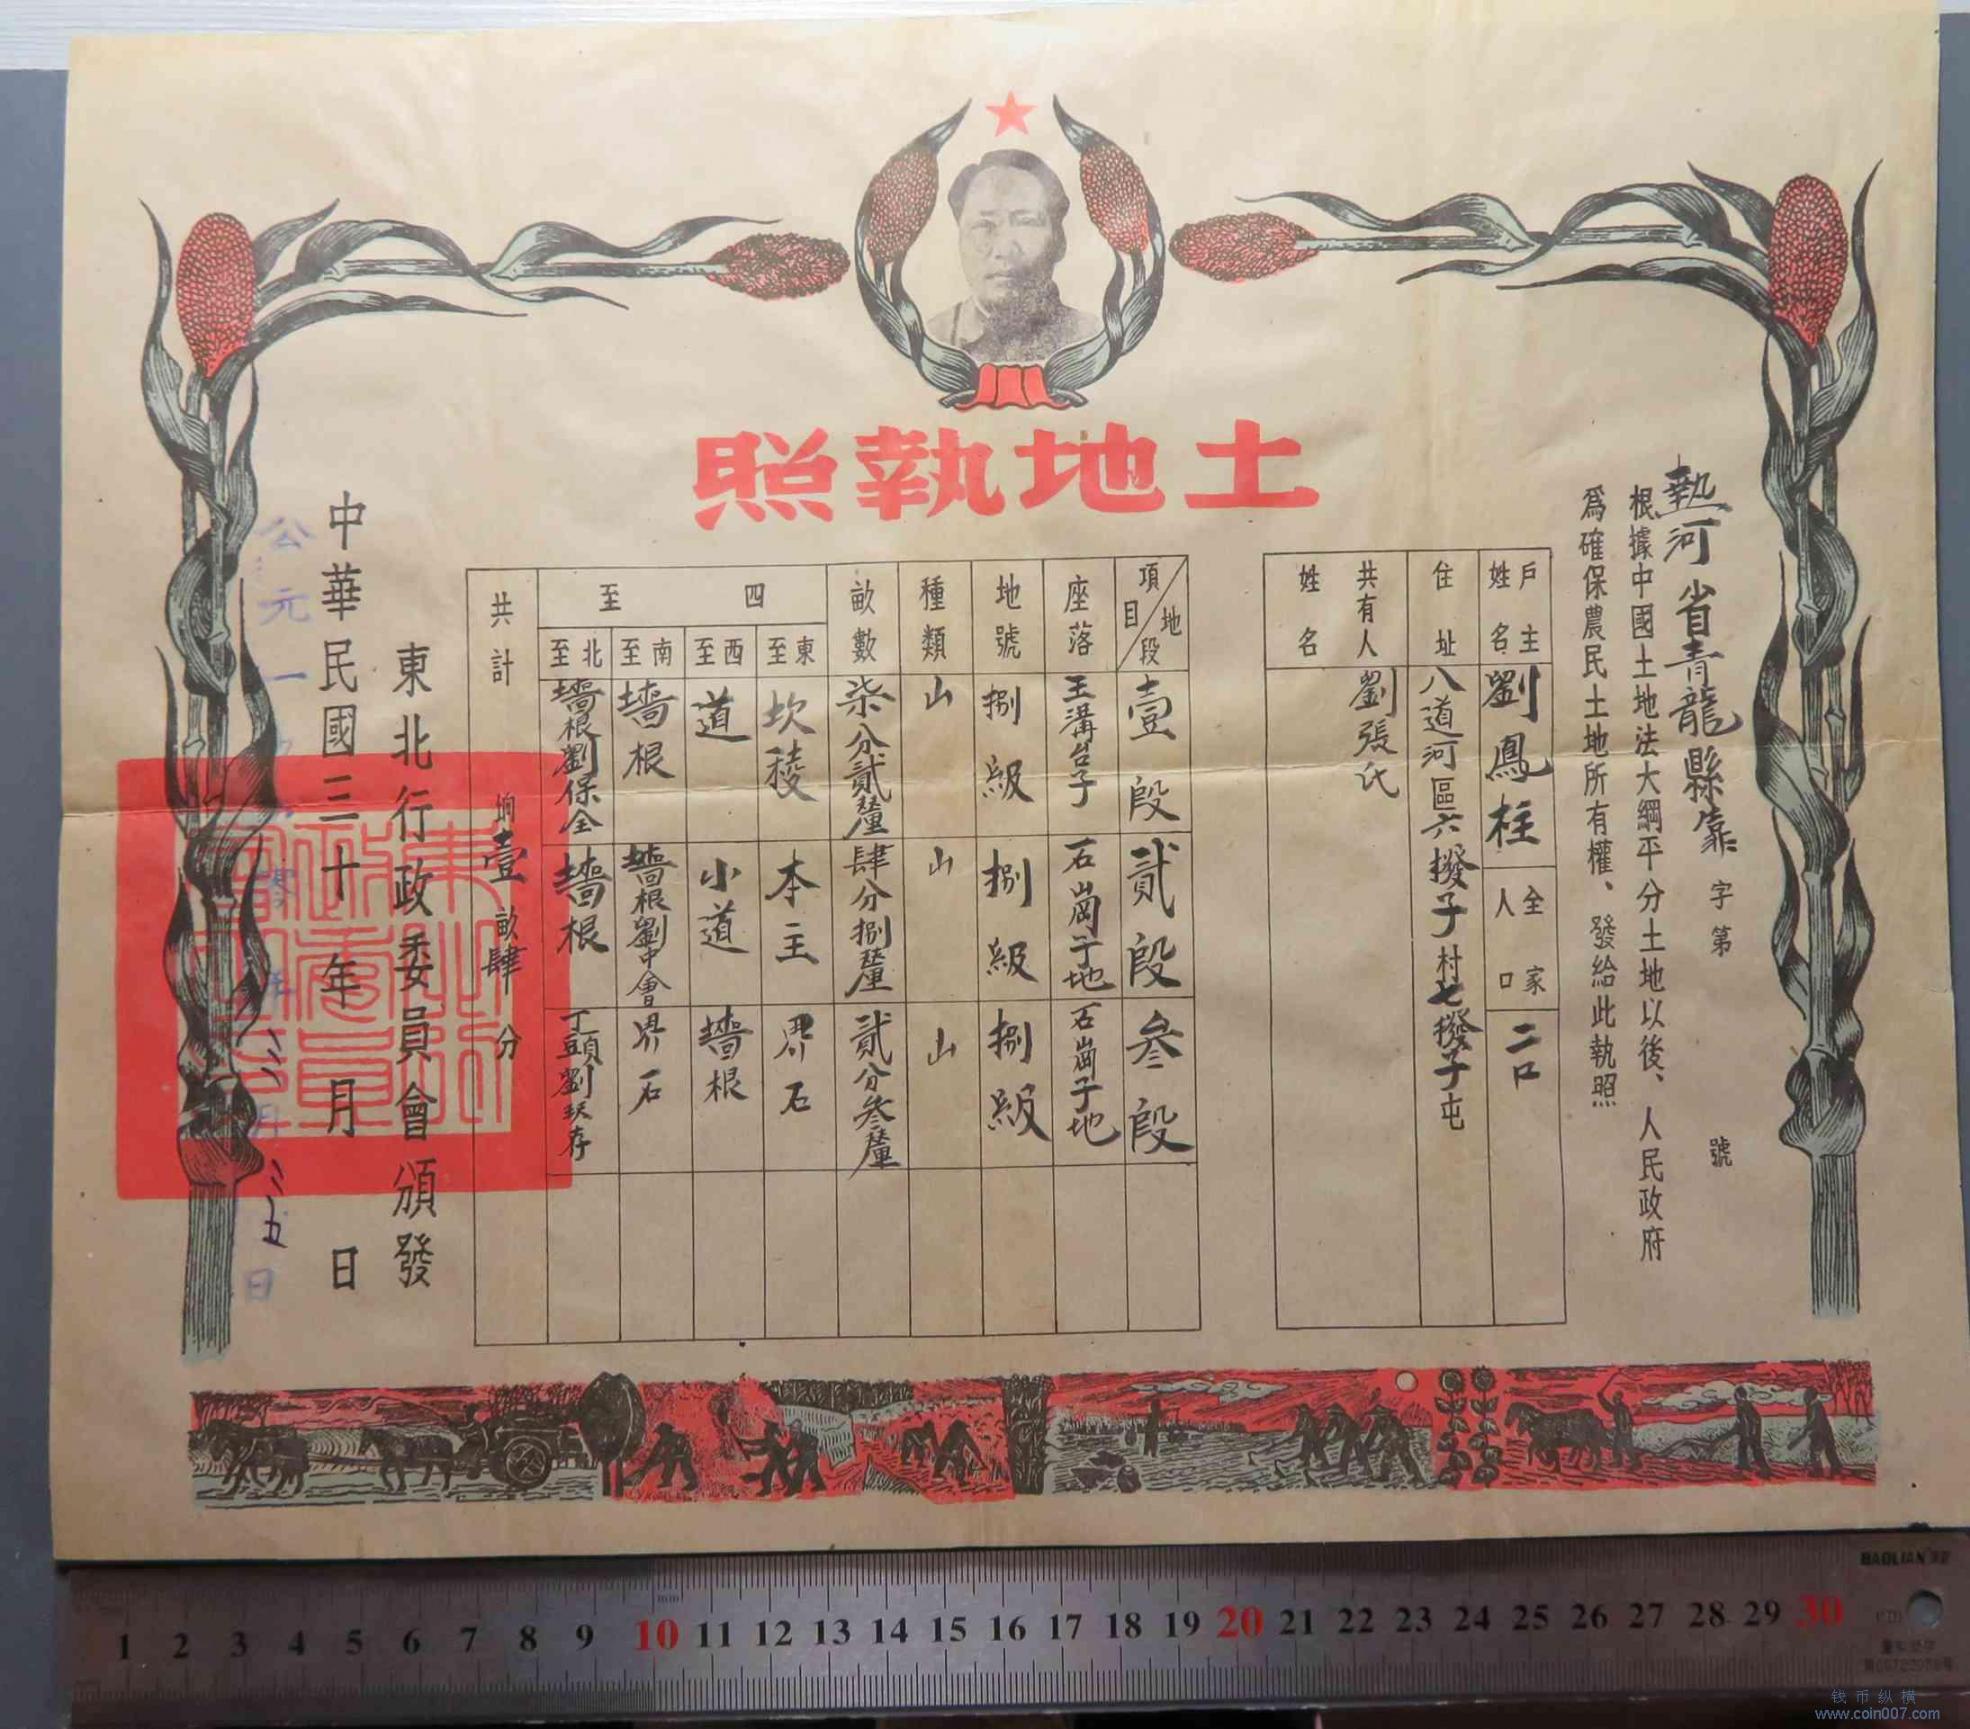 土地執照
熱河省青龍縣靠字第 號
根據中國土地法大綱平分土地以後、人民政府
爲確保農民土地所有權、發給此執照
戶主姓名
劉鳳柱
全家人口
二口
住址
八道河區六撥子村七撥子屯
共有人姓名
劉張氏
項目 地段
壹段
貳段
叁段
座落
王溝台子
石崗子地
石崗子地
地號
捌級
捌級
捌級
種類
山
山
山
畝數
柒分貳釐
肆分捌釐
貳分叁釐
四至
東至
坎稜
本主
界石
西至
道
小道
墻根
南至
墻根
墻根劉中會
界石
北至
墻根劉保全
墻根
丁頭劉 存
共計
垧壹畝肆分
東北行政委員會頒發
中華民國三十年月日
公元一九 年三月三五日
BAOLIAN
1 2 3 4 5 6 7 8 9 10 11 12 13 14 15 16 17 18 19 20 21 22 23 24 25 26 27 28 29 30 cm
钱币纵横
www.coin007.com